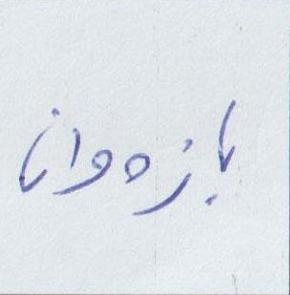 بازه‌وانا